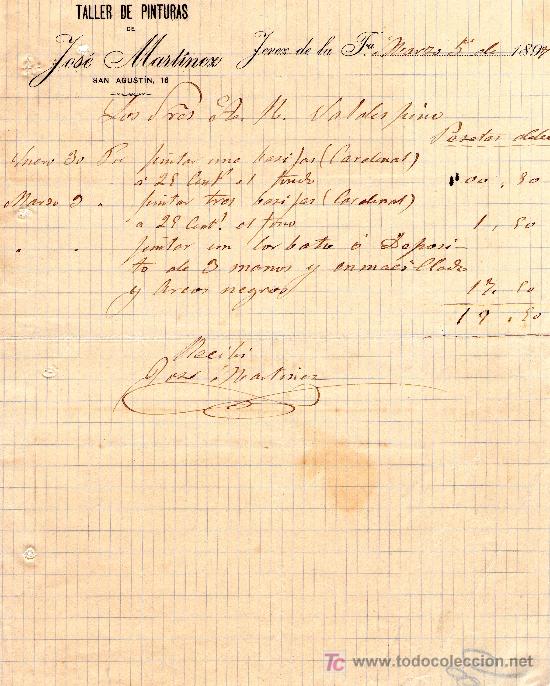 TALLER DE PINTURAS
DE
José Martínez
SAN AGUSTÍN, 16
Jerez de la Fra. Marzo 5 de 189
Los Sres A. M. Valdespino
Pesetas
Enero 30 Por pintar una basijas (Cardenal)
á 25 Cents. el fondo 00,50
Marzo 3 " pintar tres basijas (Cardenal)
a 25 Cent. el fono 1,50
" " pintar un ó Deposi
to de 3 manos y enmasillado
y Arcos negros 17.50
19.50
Recibi
José Martinez
TC www.todocoleccion.net